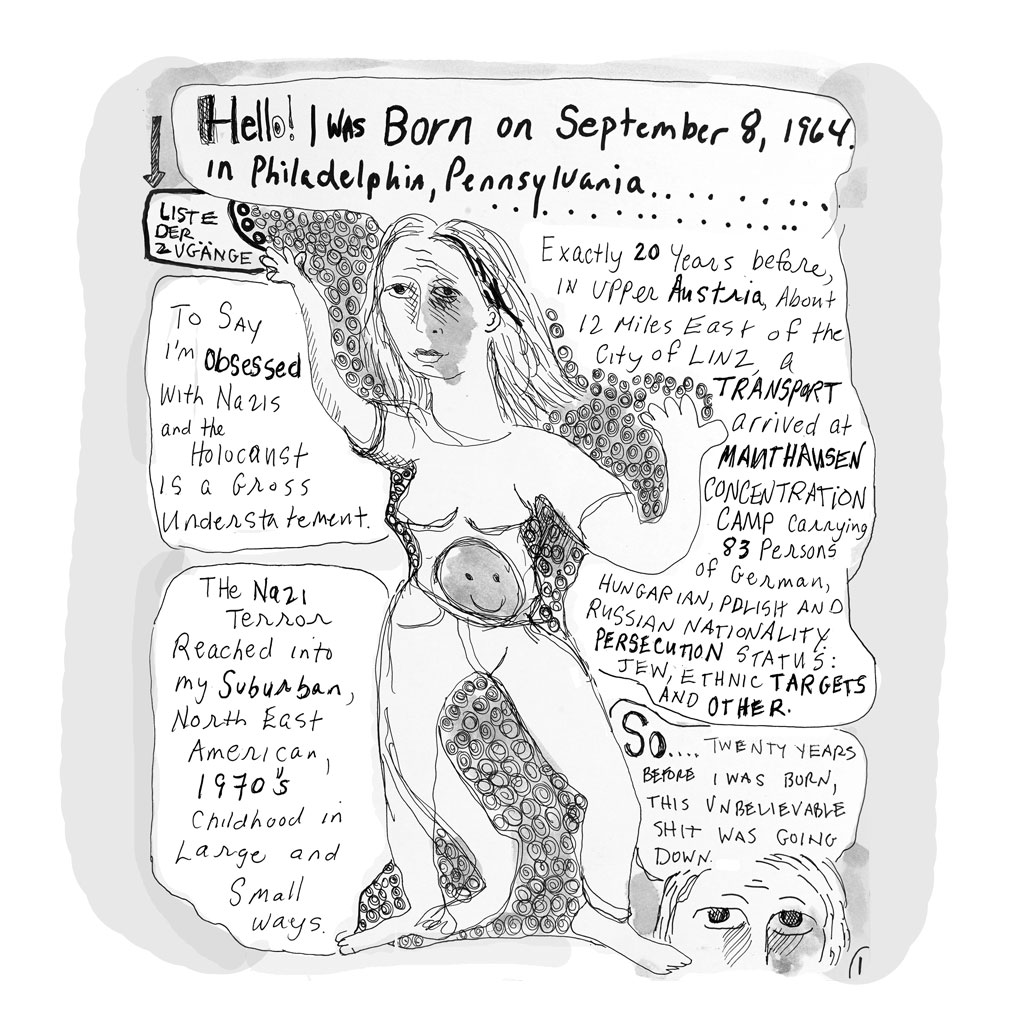 Hello! I was Born on September 8, 1964.
in Philadelphia, Pennsylvania..............
LISTE
DER
ZUGÄNGE
To Say
I'm Obsessed
With Nazis
and the
Holocaust
is a Gross
Understatement.
The Nazi
Terror
Reached into
my Suburban,
North East
American,
1970's
Childhood in
Large and
Small
ways.
Exactly 20 Years before,
in Upper Austria, About
12 Miles East of the
City of LINZ, a
TRANSPORT
arrived at
MAUTHAUSEN
CONCENTRATION
CAMP carrying
83 Persons
of German,
HUNGARIAN, POLISH AND
RUSSIAN NATIONALITY.
PERSECUTION STATUS:
JEW, ETHNIC TARGETS
AND OTHER.
So.... TWENTY YEARS
BEFORE I WAS BORN,
THIS UNBELIEVABLE
SHIT WAS GOING
DOWN.
1